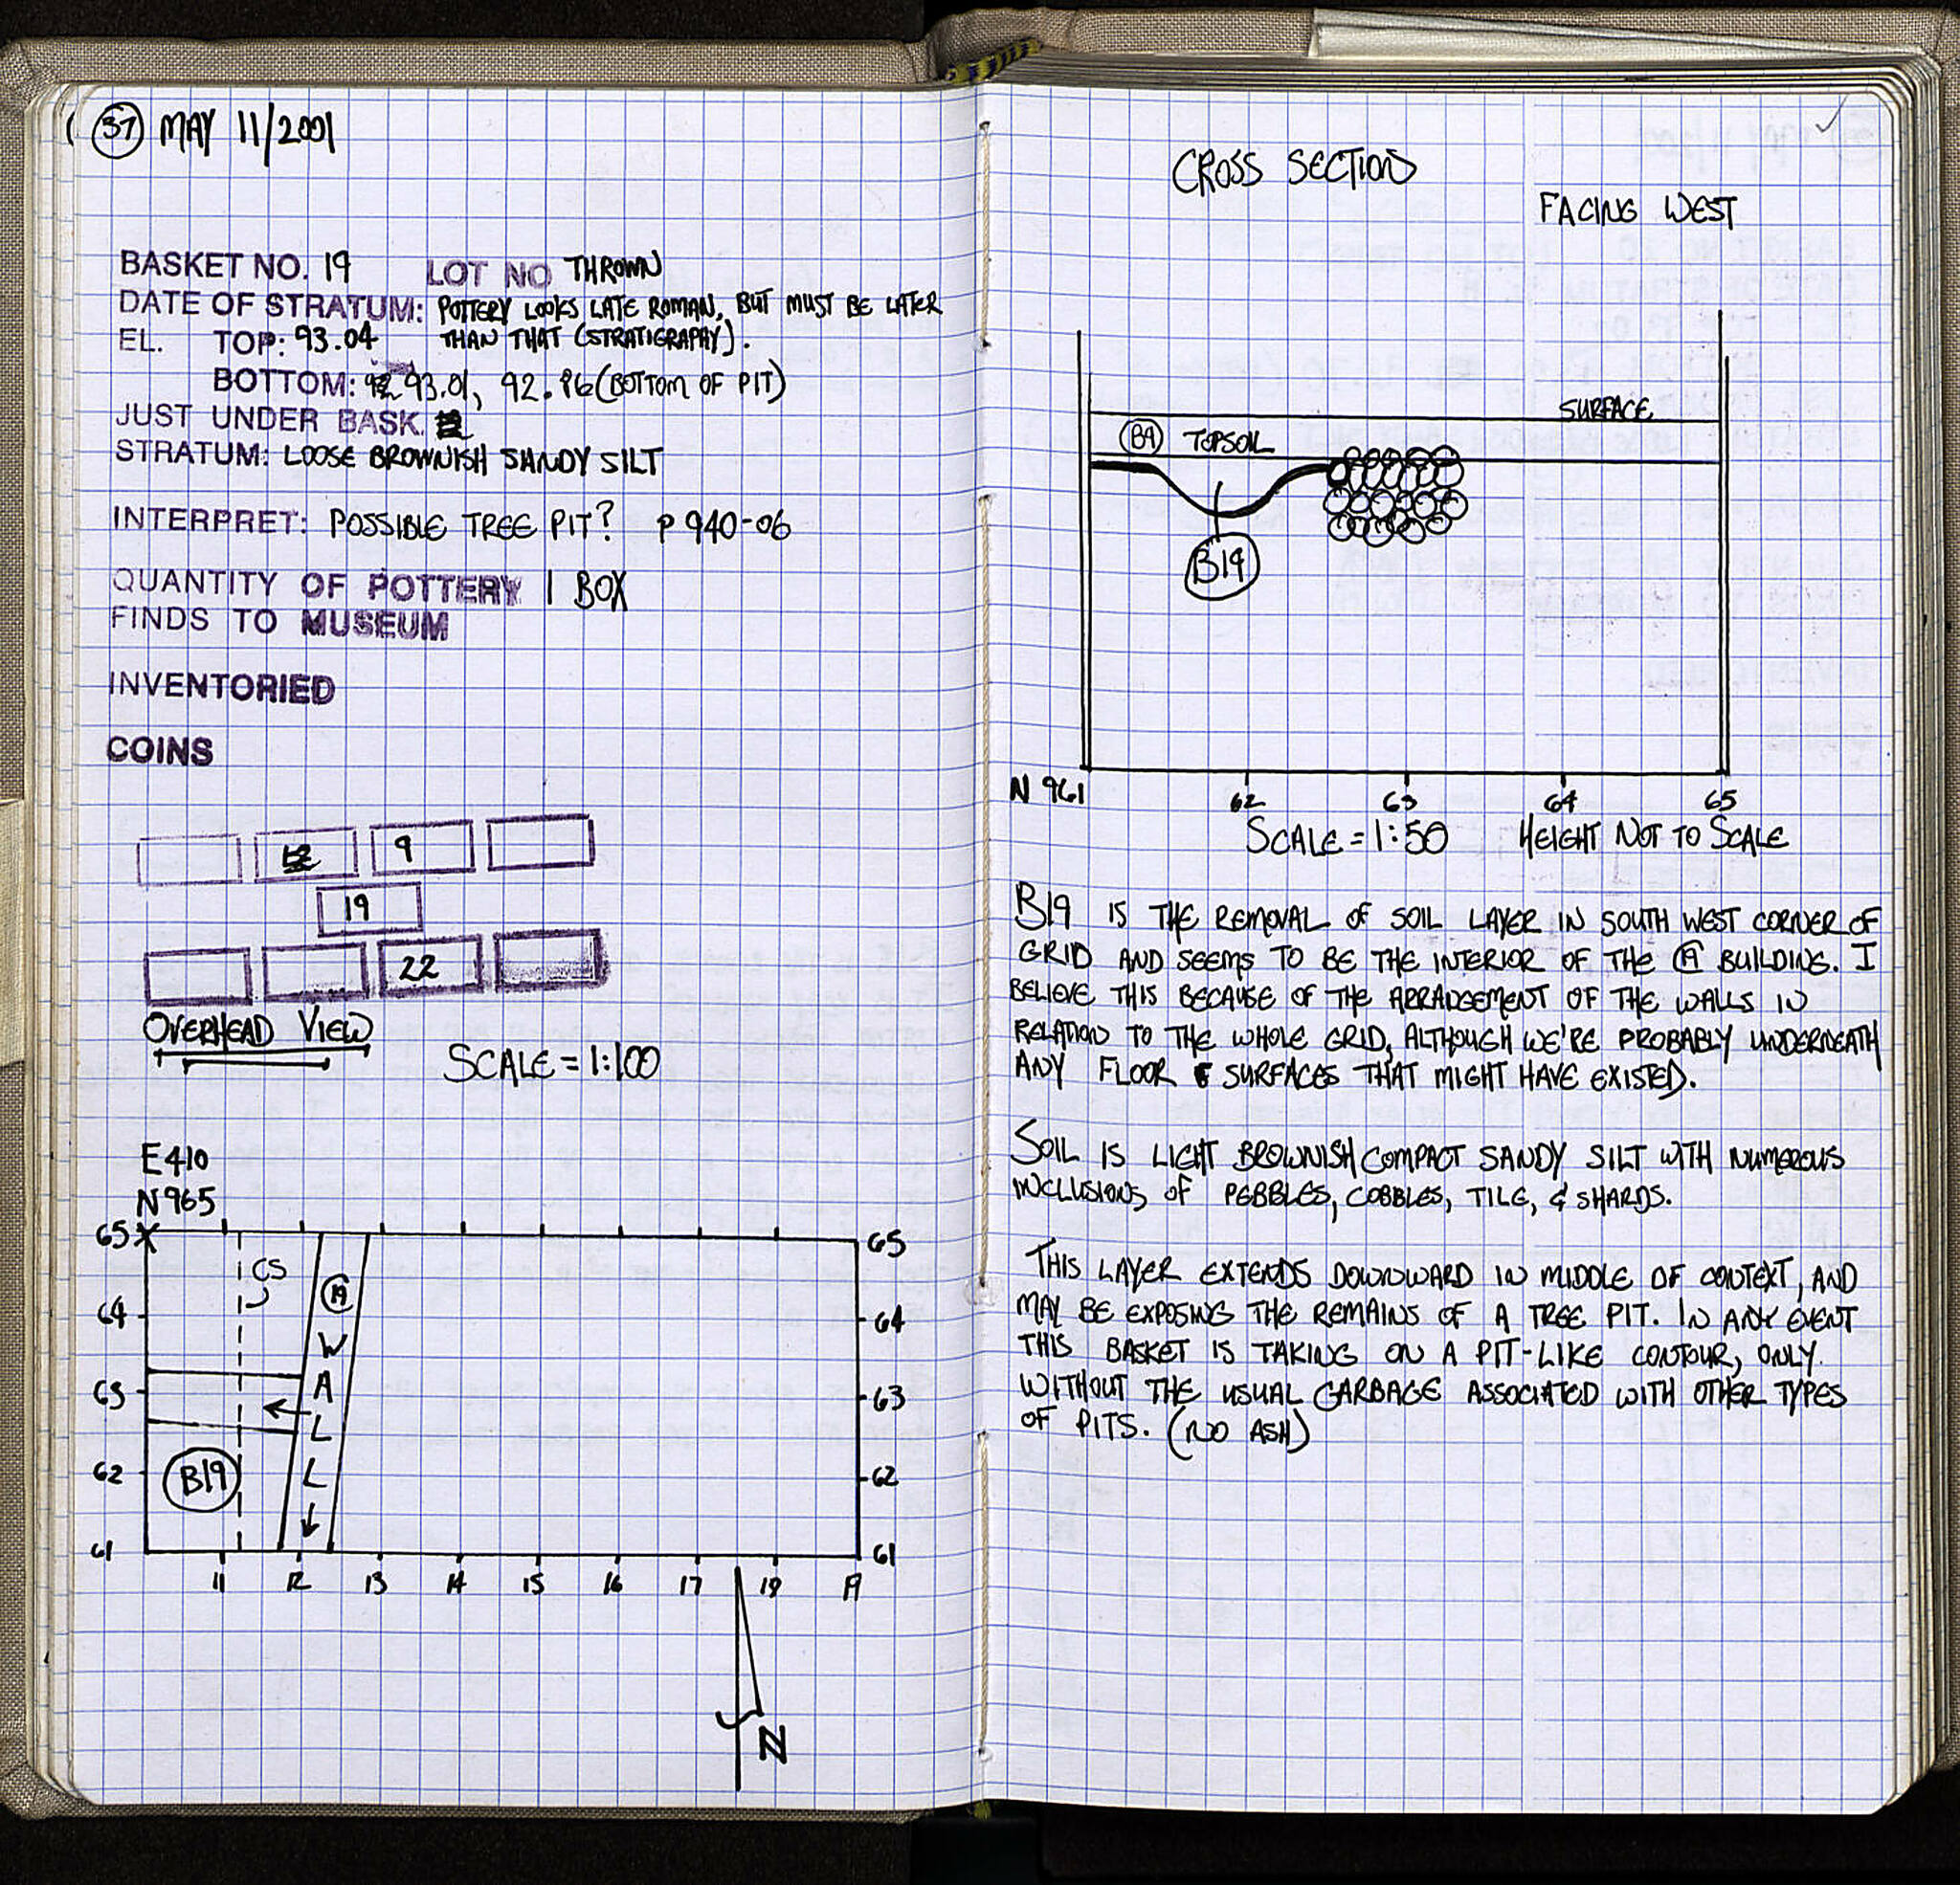 37 MAY 11/2001
BASKET NO. 19 LOT NO THROWN
DATE OF STRATUM: POTTERY LOOKS LATE ROMAN, BUT MUST BE LATER
EL. TOP: 93.04 THAN THAT (STRATIGRAPAY).
BOTTOM: 93.01, 92.86 (BOTTOM OF PIT)
JUST UNDER BASK.
STRATUM: LOOSE BROWNISH SANDY SILT
INTERPRET: POSSIBLE TREE PIT? P 940-06
QUANTITY OF POTTERY 1 BOX
FINDS TO MUSEUM
INVENTORIED
COINS
9
19
22
OVERHEAD VIEW
SCALE = 1:100
E410
N965
65 65
CS
A
64 64
W
A
63 63
L
B19
62 L 62
61 61
11 12 13 14 15 16 17 18 19
N
CROSS SECTION
FACING WEST
SURFACE
B9 TOPSOIL
B19
N 961 62 63 64 65
SCALE = 1:50 HEIGHT NOT TO SCALE
B19 IS THE REMOVAL OF SOIL LAYER IN SOUTH WEST CORNER OF
GRID AND SEEMS TO BE THE INTERIOR OF THE A BUILDING. I
BELIEVE THIS BECAUSE OF THE ARRANGEMENT OF THE WALLS IN
RELATION TO THE WHOLE GRID, ALTHOUGH WE'RE PROBABLY UNDERNEATH
ANY FLOOR SURFACES THAT MIGHT HAVE EXISTED.
SOIL IS LIGHT BROWNISH COMPACT SANDY SILT WITH NUMEROUS
INCLUSIONS OF PEBBLES, COBBLES, TILE, & SHARDS.
THIS LAYER EXTENDS DOWNWARD IN MIDDLE OF CONTEXT, AND
MAY BE EXPOSING THE REMAINS OF A TREE PIT. IN ANY EVENT
THIS BASKET IS TAKING ON A PIT-LIKE CONTOUR, ONLY
WITHOUT THE USUAL GARBAGE ASSOCIATED WITH OTHER TYPES
OF PITS. (NO ASH)